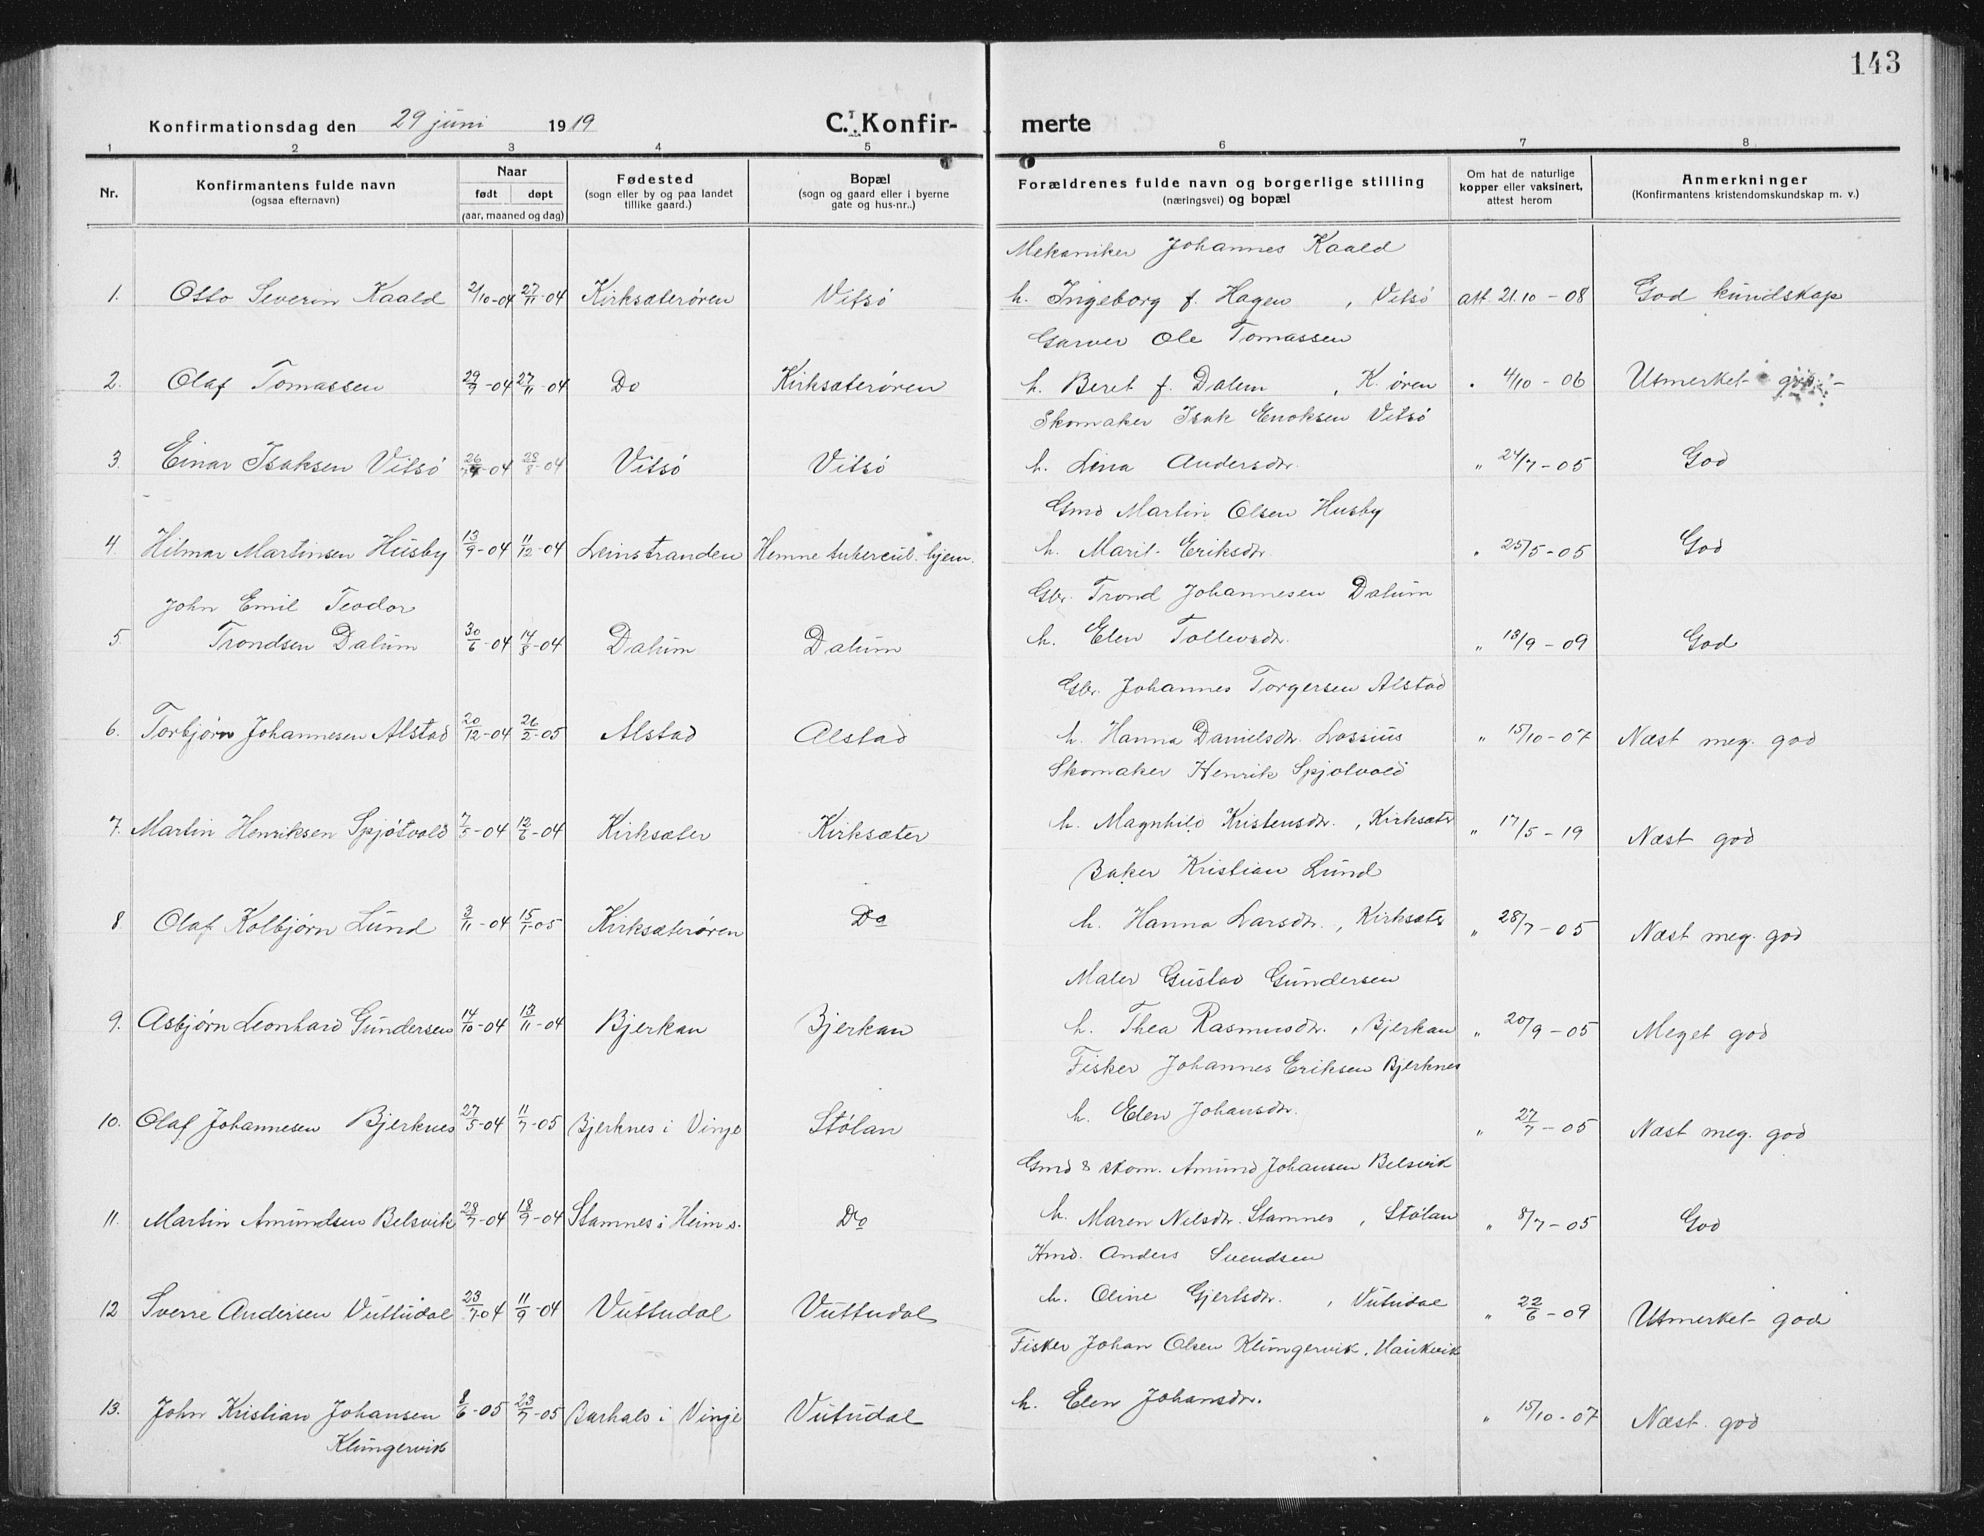 143
Konfirmationsdag den 29 juni 1919 C. Konfir- merte
1 2 3 4 5 6 7 8
Nr. Konfirmantens fulde navn (ogsaa efternavn) Naar født døpt (aar, maaned og dag) Fødested (sogn eller by og paa landet tillike gaard.) Bopæl (sogn og gaard eller i byerne gate og hus-nr..) Forældrenes fulde navn og borgerlige stilling (næringsvei) og bopæl Om hat de naturlige kopper eller vaksinert, attest herom Anmerkninger (Konfirmantens kristendomskundskap m. v.)
Mekaniker Johannes Kaald
1. Otto Severin Kaald 2/10-04 27/11-04 Kirksæterøren Vitsø h. Ingeborg f. Hagen, Vitsø att 21.10-08 God kundskap
Garver Ole Tomassen
2. Olaf Tomassen 29/9-04 27/11-04 Do Kirksæterøren h. Beret f. Dalem, K. øren " 4/10-06 Utmerket god
Skomaker Isak Enoksen Vitsø
3. Einar Isaksen Vitsø 26/7-04 28/8-04 Vitsø Vitsø h. Lina Andersdr. " 24/7-05 God
Gmd Martin Olsen Husby
4. Hilmar Martinsen Husby 13/9-04 11/12-04 Leinstranden Hemne tubercul. hjem. h. Marit Eriksdr. " 25/5-05 God
John Emil Teodor Gbr. Trond Johannesen Dalum
5. Trondsen Dalum 30/6-04 14/8-04 Dalum Dalum h. Elen Tollevsdr. " 13/9-09 God
Gbr. Johannes Torgersen Alstad
6. Torbjørn Johannesen Alstad 20/12-04 26/2-05 Alstad Alstad h. Hanna Danielsdr. Lossius " 15/10-07 Næst meg. god
Skomaker Henrik Spjøtvold
7. Martin Henriksen Spjøtvold 7/5-04 12/6-04 Kirksæter Kirksæter h. Magnhild Kristensdr., Kirksætr " 17/5-19 Næst god
Baker Kristian Lund
8 Olaf Kolbjørn Lund 3/11-04 15/1-05 Kirksæterøren Do h. Hanna Larsdr., Kirksætr " 28/7-05 Næst meg. god
Maler Gustav Gundersen
9. Asbjørn Leonhard Gundersen 14/10-04 13/11-04 Bjerkan Bjerkan h. Thea Rasmusdr., Bjerkan " 20/9-05 Meget god
Fisker Johannes Eriksen Bjerknes
10. Olaf Johannesen Bjerknes 27/5-04 11/7-05 Bjerknes i Vinje Stølan h. Elen Johansdr. " 27/7-05 Næst meg. god
Gmd & skom. Amund Johansen Belsvik
11. Martin Amundsen Belsvik 28/7-04 18/9-04 Stamnes i Heim s. Do h. Maren Nilsdr. Stamnes, Stølan " 8/7-05 God
Hmd. Anders Svendsen
12 Sverre Andersen Vuttudal 23/7-04 11/9-04 Vuttudal Vuttudal h. Oline Gjertsdr., Vutudal " 22/6-09 Utmerket god
Fisker Johan Olsen Klungervik, Haukvik
13. John Kristian Johansen 8/6-05 23/7-05 Barhals i Vinje Vutudal h. Elen Johansdr. " 15/10-07 Næst god
Klungervik